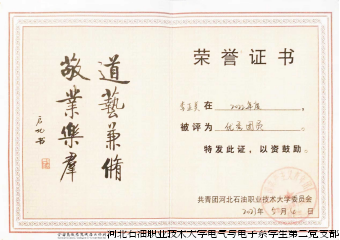 道藝兼脩
敬業樂群
荣誉证书
在 2022年度
被评为 优秀团员
特发此证，以资鼓励。
共青团河北石油职业技术大学委员会
2023年
河北石油职业技术大学电气与电子系学生第二党支部